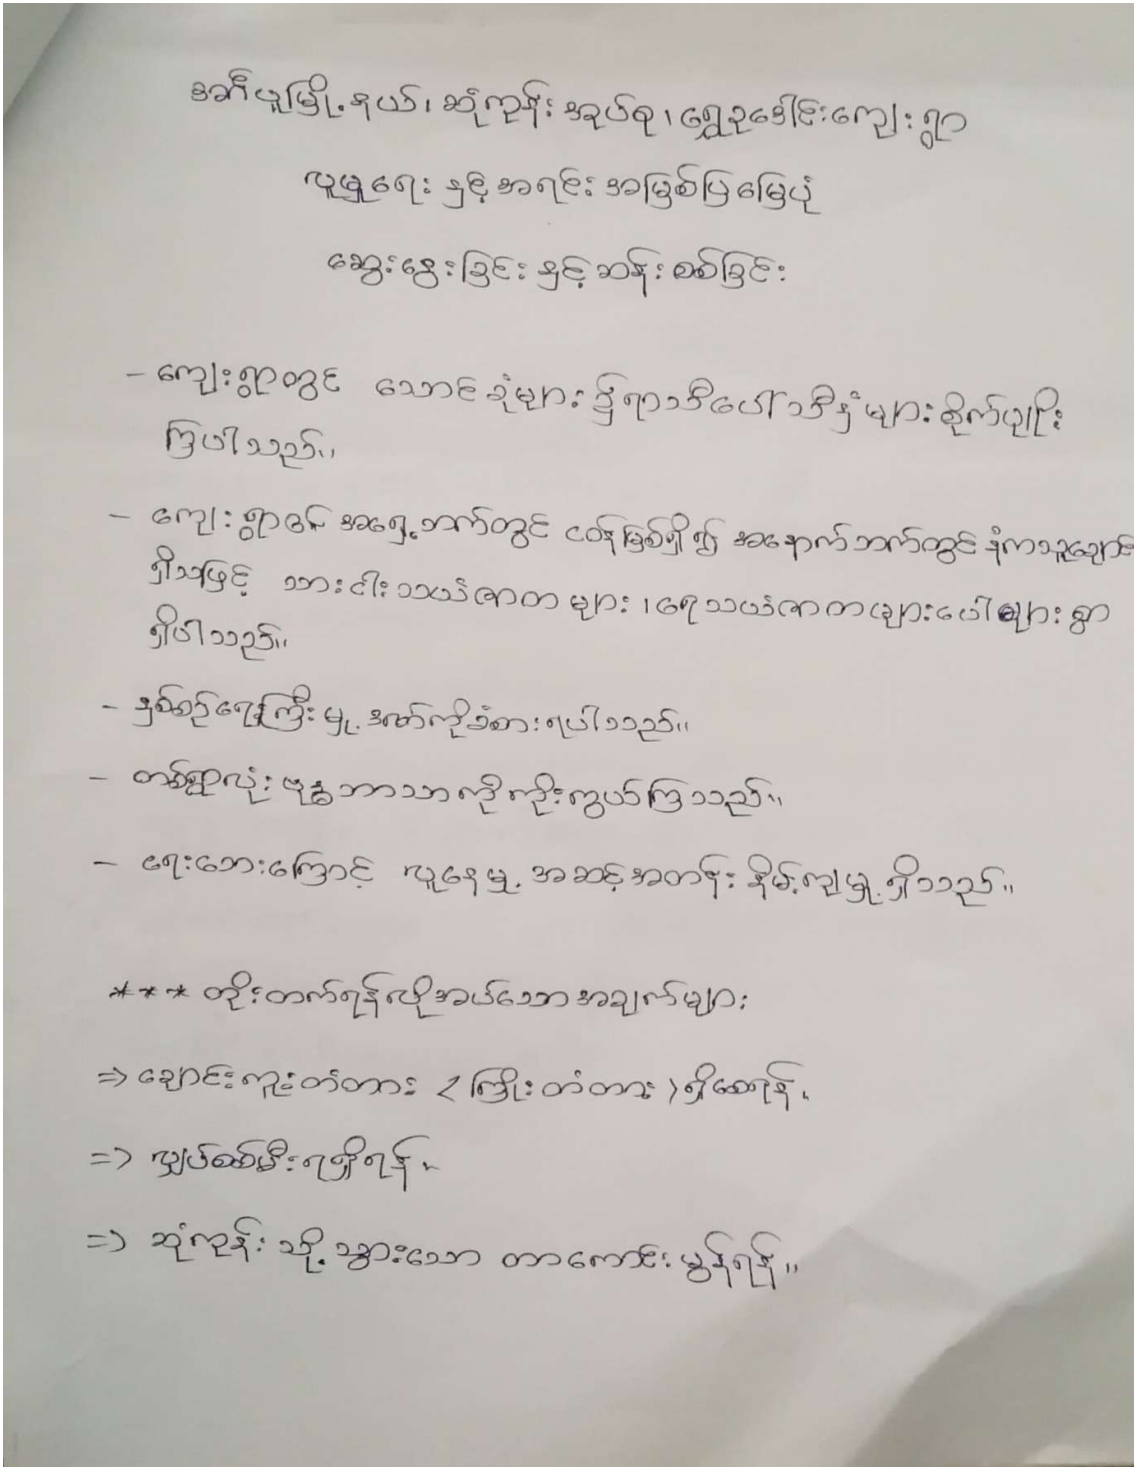 အင်္ဂပူမြို့နယ်၊ ဆုံကုန်းအုပ်စု၊ ရွှေဥဒေါင်းကျေးရွာ
လူမှုရေး နှင့် အရင်း အမြစ်ပြမြေပုံ
ဆွေးနွေးခြင်း နှင့် ဆန်းစစ်ခြင်း
- ကျေးရွာတွင် သောင်ခုံများ၌ ရာသီပေါ်သီးနှံများ စိုက်ပျိုး
ကြပါသည်။
- ကျေးရွာ၏ အရှေ့ဘက်တွင် ငဝန်မြစ်ရှိ၍ အနောက်ဘက်တွင် နံကသူချောင်း
ရှိသဖြင့် သားငါးသယံဇာတများ၊ ရေသယံဇာတများပေါများစွာ
ရှိပါသည်။
- နှစ်စဉ်ရေကြီးမှု ဒဏ်ကိုခံစားရပါသည်။
- တစ်ရွာလုံး ဗုဒ္ဓဘာသာကိုကိုးကွယ်ကြသည်။
- ရေးဘေးကြောင့် လူနေမှု အဆင့်အတန်း နိမ့်ကျမှု ရှိသည်။
*** တိုးတက်ရန်လိုအပ်သောအချက်များ
⇒ ချောင်းကူးတံတား < ကြိုးတံတား > ရှိစေရန်၊
⇒ လျှပ်စစ်မီးရရှိရန်၊
⇒ ဆုံကုန်း သို့ သွားသော တာကောင်းမွန်ရန်။